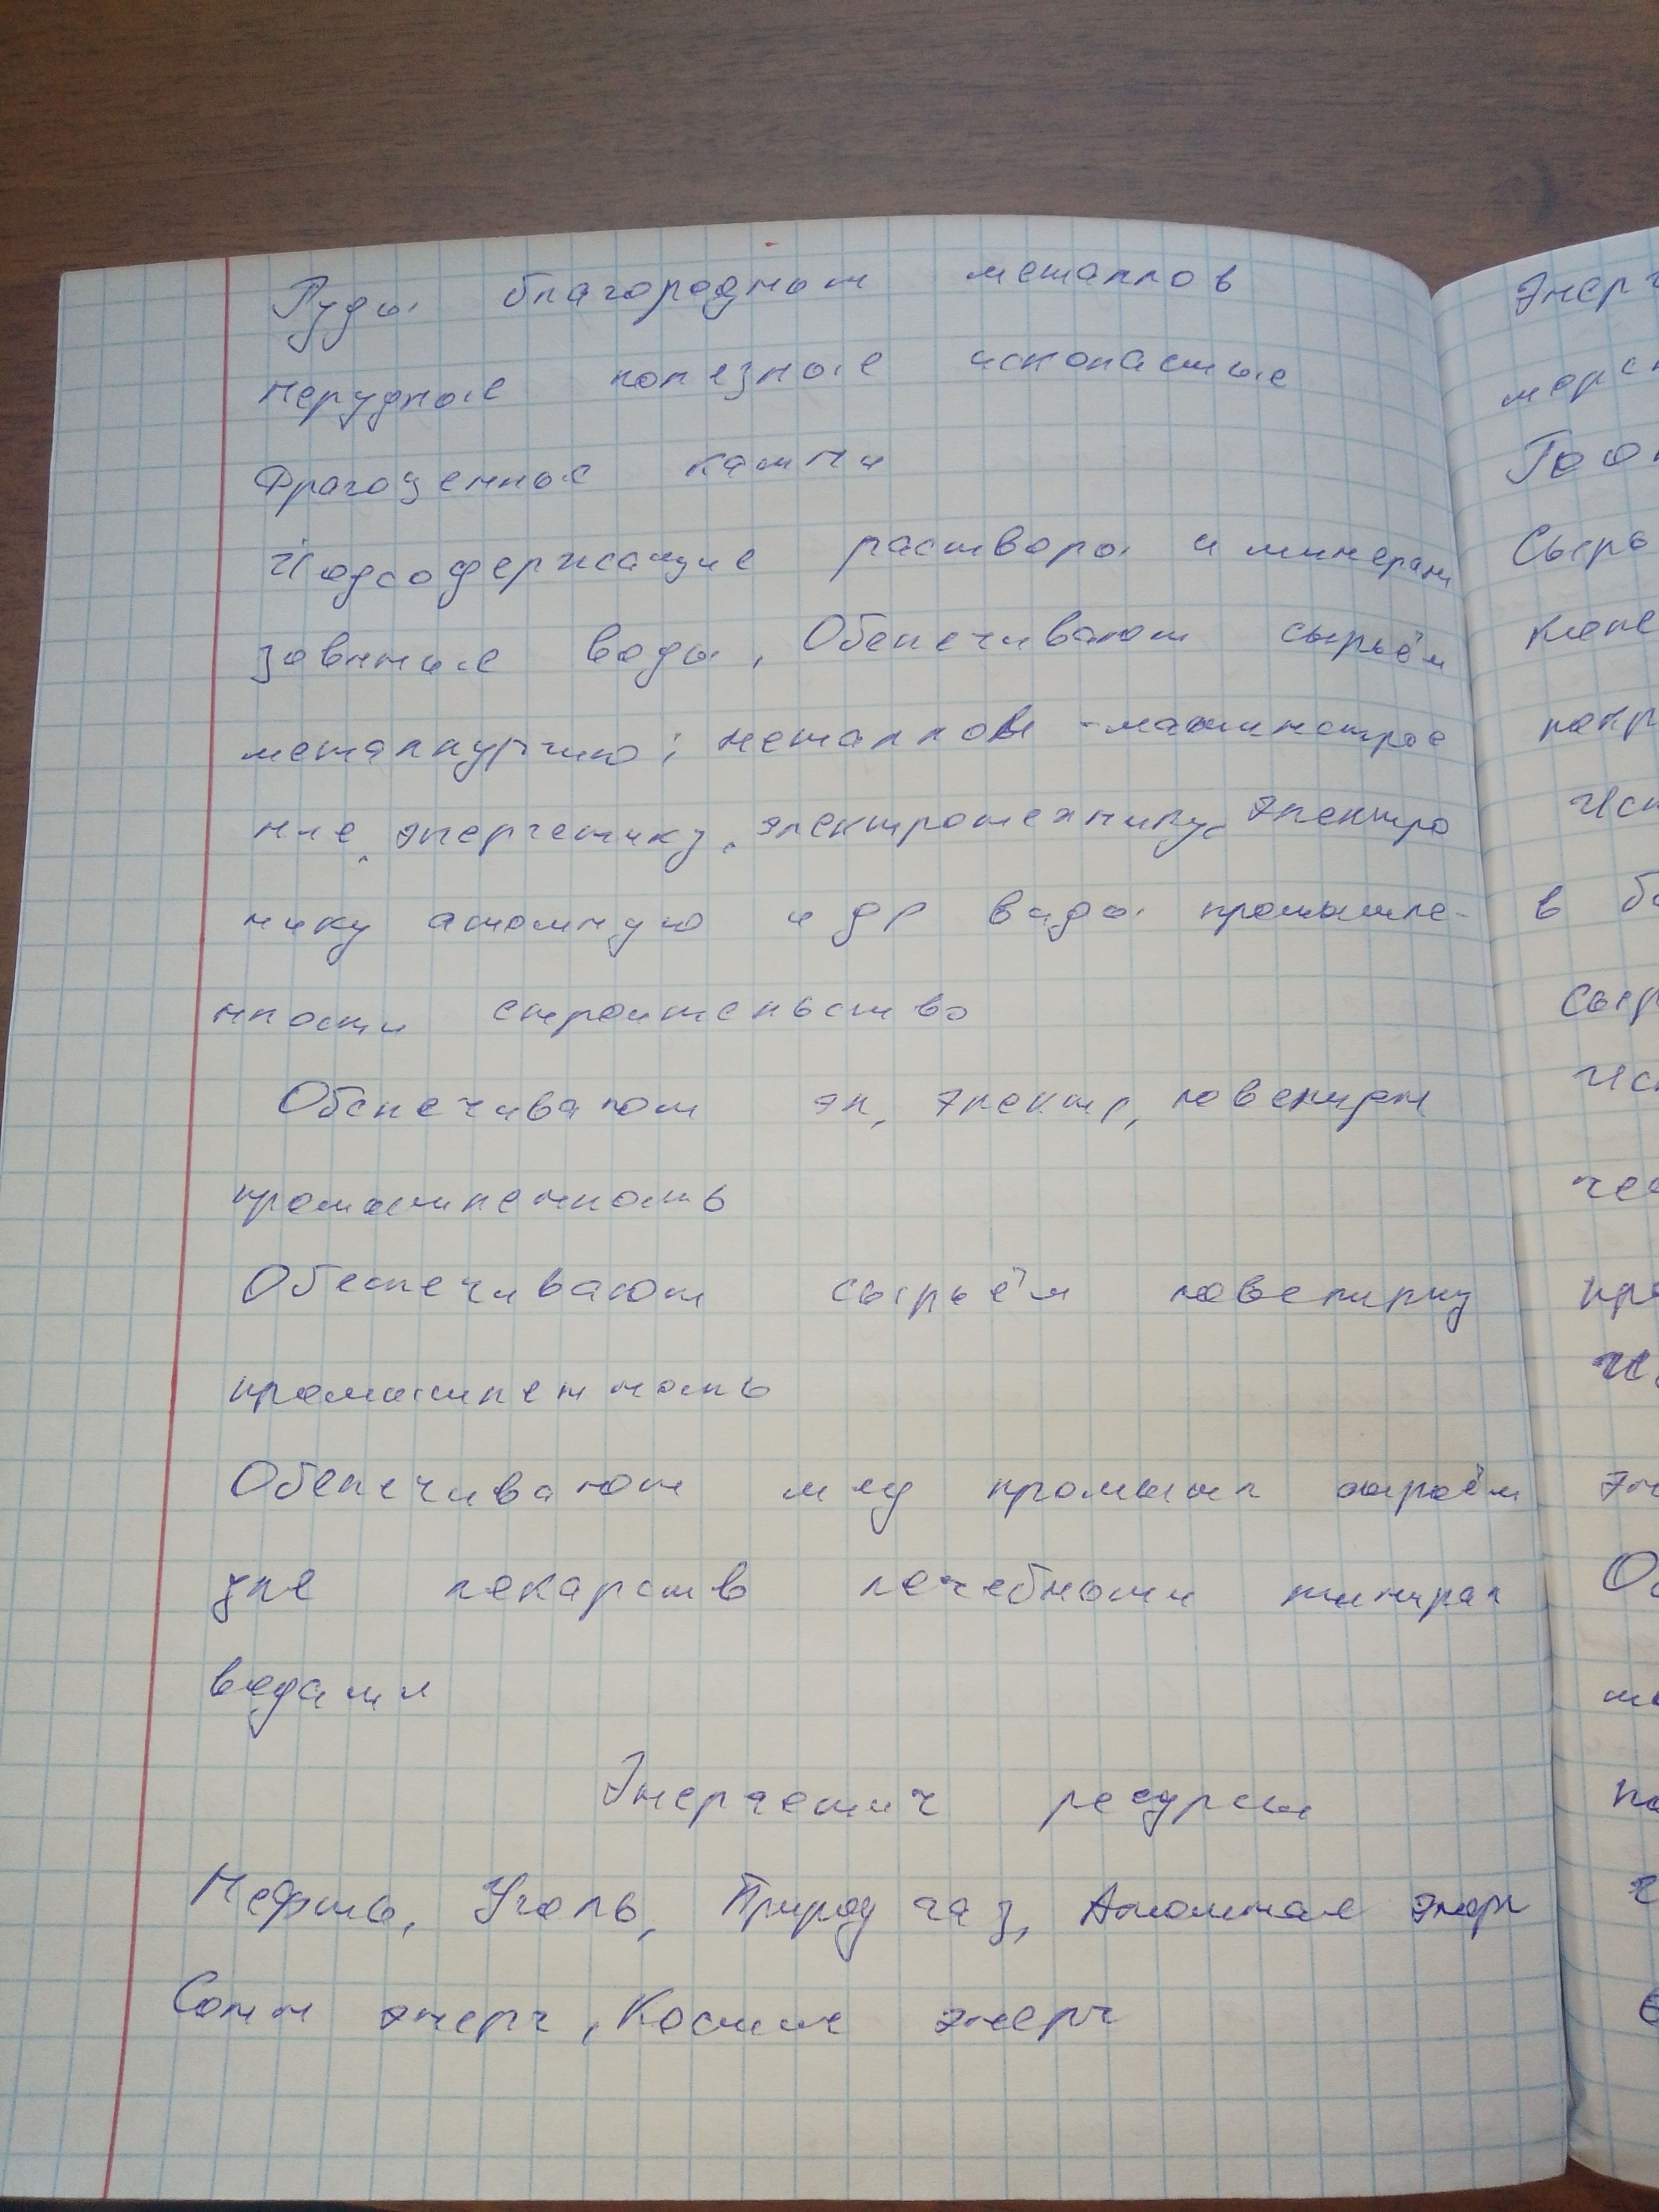 Руды благородных металлов
нерудные полезные ископаемые
Драгоценные камни
Йодсодержащие растворы и минерали
зованные воды, Обепечивают сырьём
металлургию; металлов - машинострое
ние, энергетику, электротехнику, электро
нику атомную и др виды промышле-
нности строительство
Обепечивают эл, электр, ювелирн
промышленность
Обепечивают сырьём ювелирну
промышленность
Обепечивают мед промышл сырьём
для лекарств лечебными минерал
водами
Энергетич ресурсы
Нефть, Уголь, Природ газ, Атомная энерг
Солн энерг, Космич энерг
Энерг
морск
Сырь
Исп
в
сыр
Исп